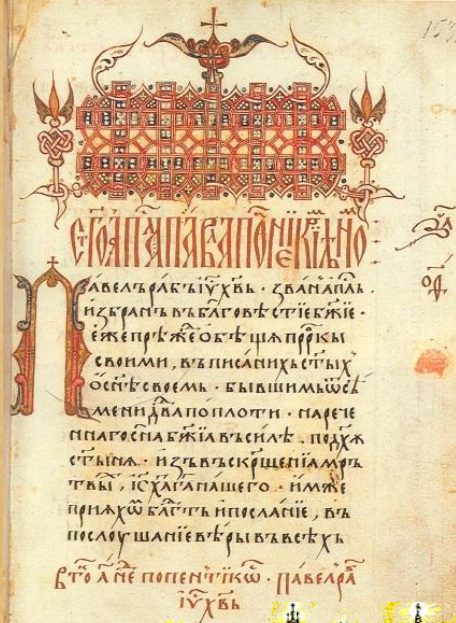 стго апⷭ҇ла павла
Павелъ рабъ іу҃ хв҃ь · званъ апⷭ҇ль ·
избранъ въ бл҃говѣстїе бж҃їе ·
еже прѣжⷣе ѻбѣща прⷪ҇ркы
своими, въ писанїихь ст҃ых
ѻ сн҃ѣ своемь · бывшимь ѿ сѣ
мени дв҃да по плоти · нарече
ннаго сн҃а бж҃їа въ силѣ. по дх҃ꙋ
ст҃ынѧ · изъ въскрⷭ҇щенїа мрⷮ
твыⷯ, іс҃ х҃а га҃ нашего · имже
прїѧхѡⷨ блⷣгть и посланїе, въ
послоушанїе вѣры въ всѣхь
вто а҃ неⷣ по пентикѡⷭ · павел ра҃
іу҃ хв҃ь